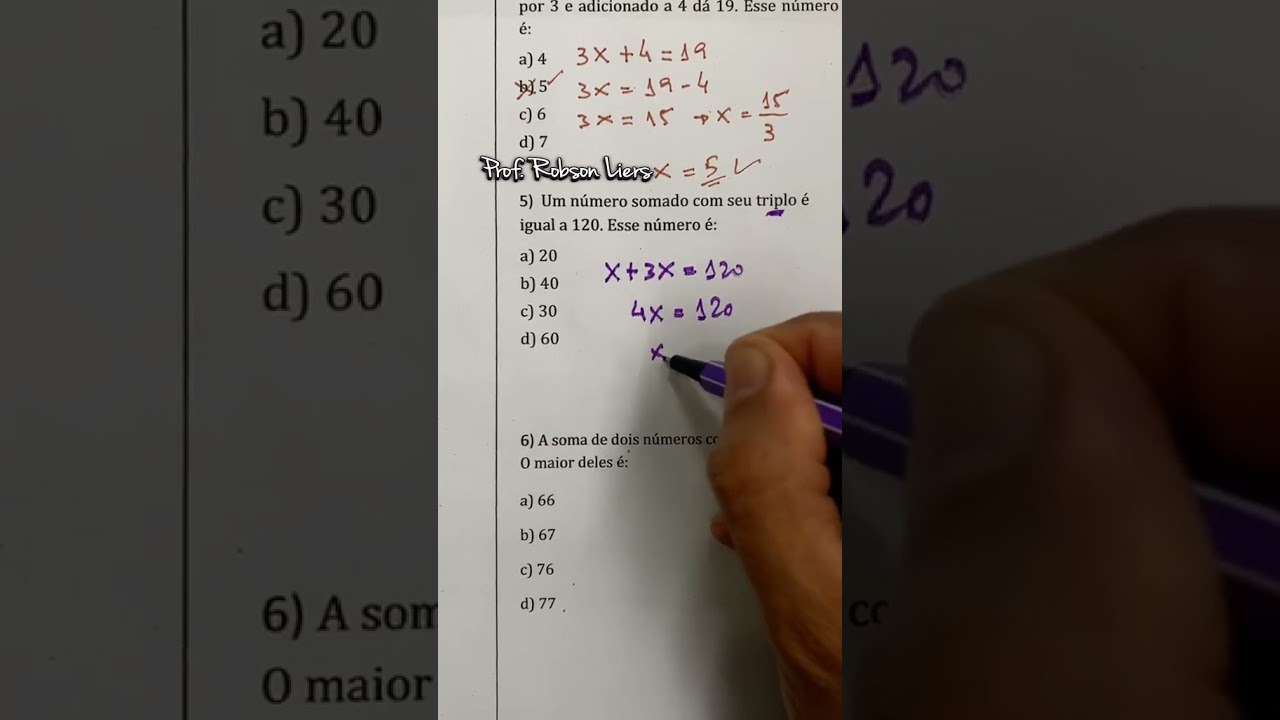 por 3 e adicionado a 4 dá 19. Esse número
é:
a) 4
b) 5
c) 6
d) 7
3x + 4 = 19
3x = 19 - 4
3x = 15 → x = 15/3
x = 5 ✓
Prof. Robson Liers
5) Um número somado com seu triplo é
igual a 120. Esse número é:
a) 20
b) 40
c) 30
d) 60
x + 3x = 120
4x = 120
x
6) A soma de dois números co
O maior deles é:
a) 66
b) 67
c) 76
d) 77
a) 20
b) 40
c) 30
d) 60
6) A som
O maior
120
20
co